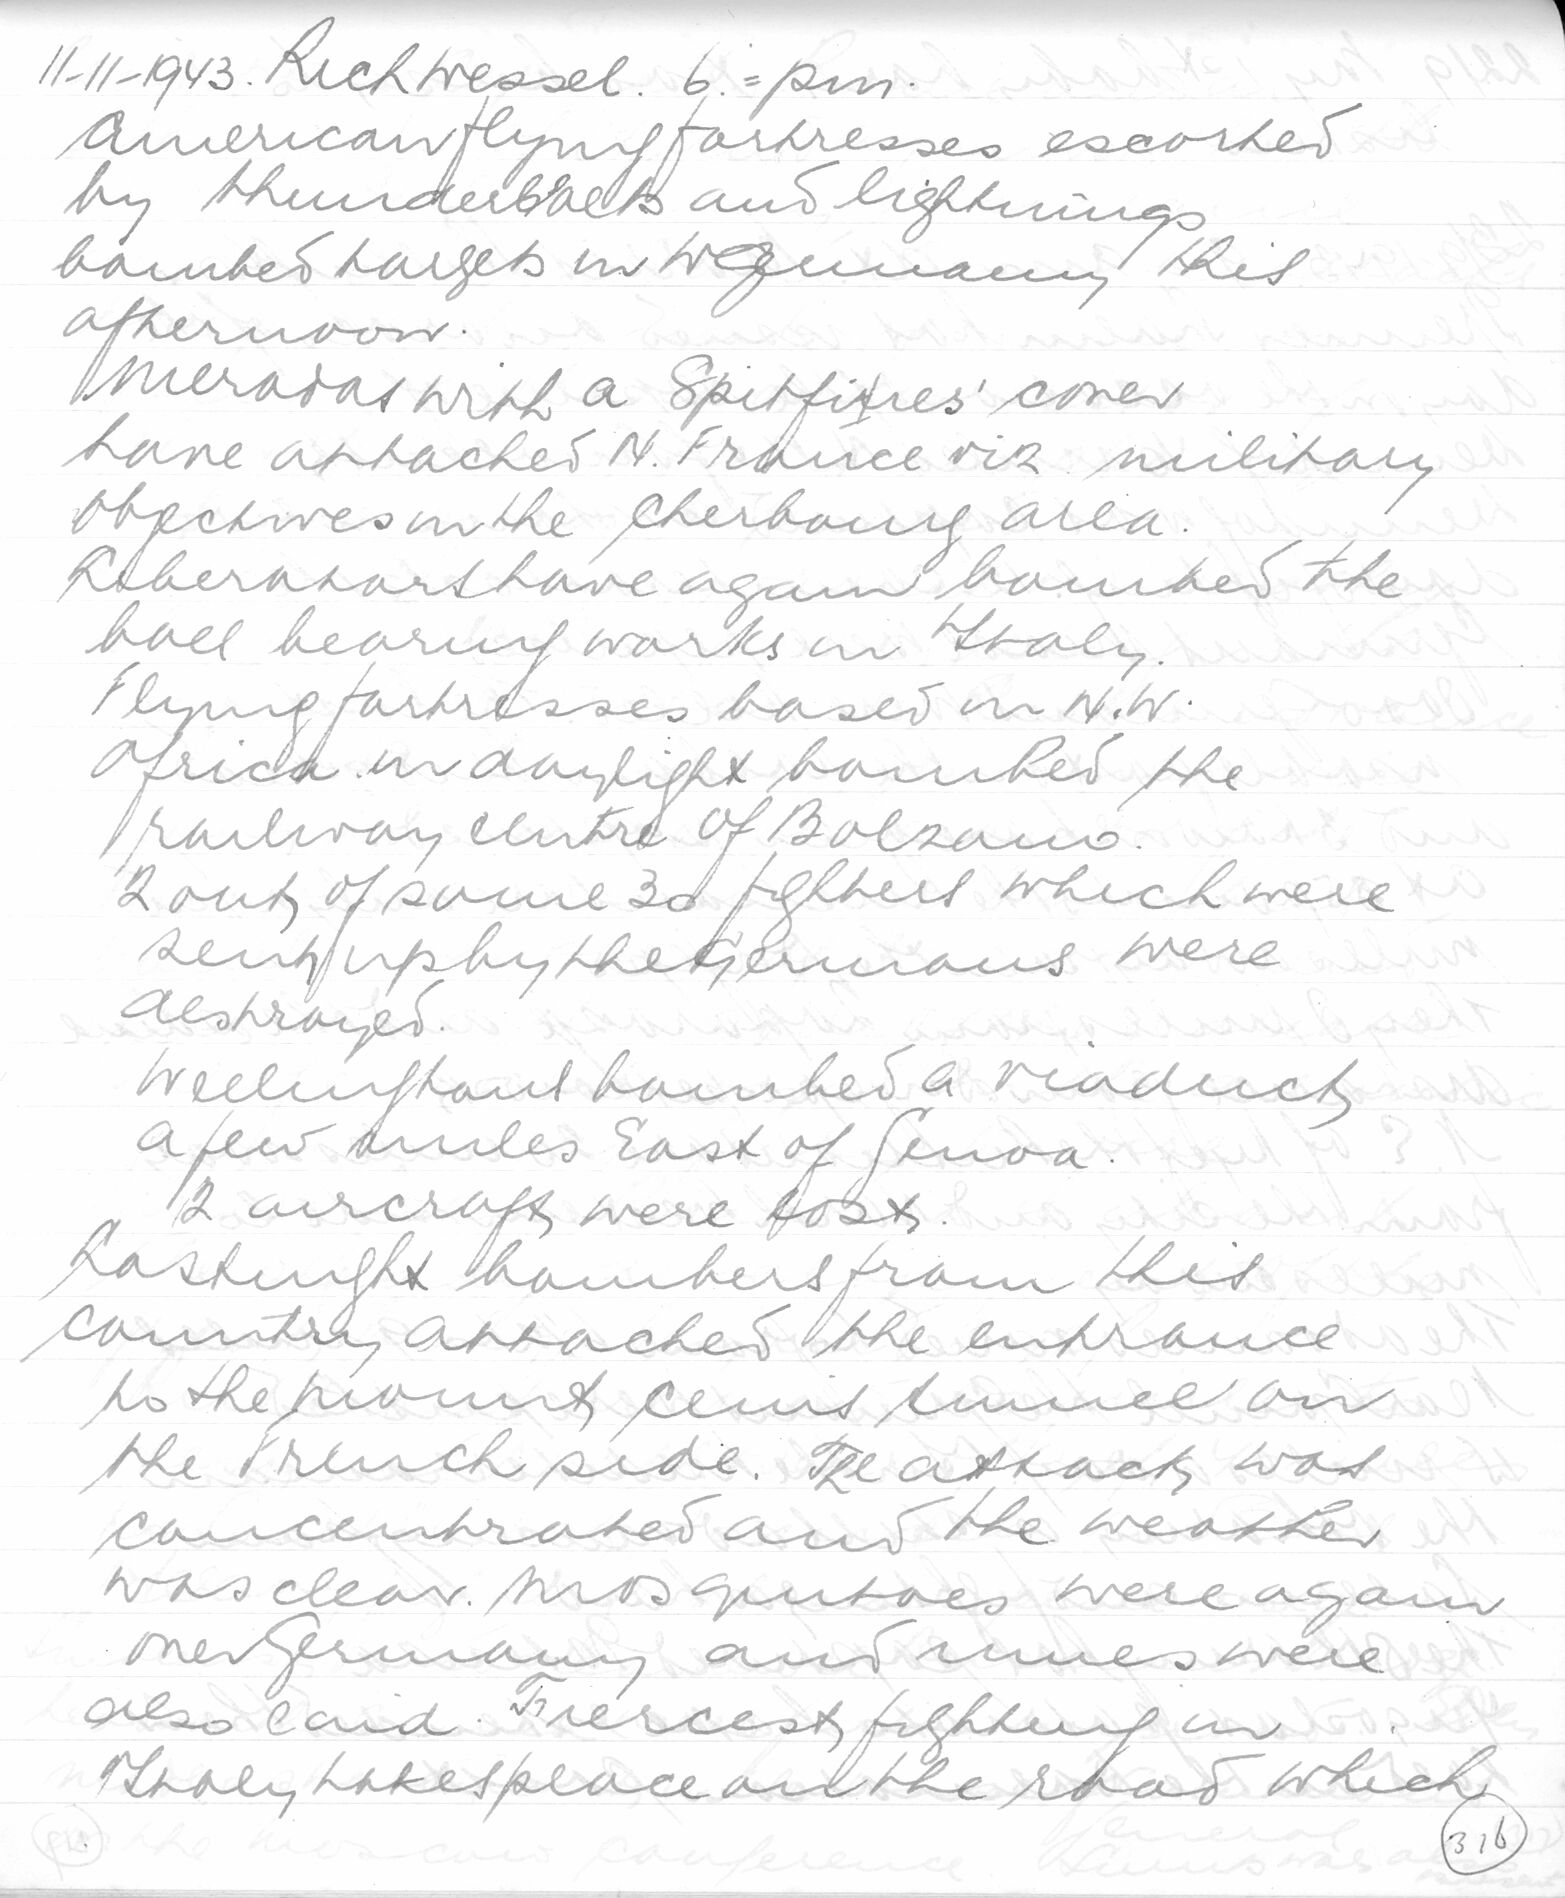 11-11-1943. Rich Wessel. 6.= pm.
American flying fortresses escorted
by thunderbolts and lightnings
bombed targets in W Germany this
afternoon.
Meradas with a Spitfires' cover
have attacked N. France viz military
objectives in the Cherbourg area.
Liberators have again bombed the
ball bearing works in Italy.
Flying fortresses based in N.W.
Africa in daylight bombed the
railway centre of Bolzano.
2 out of some 30 fighters which were
sent up by the Germans were
destroyed.
Wellingtons bombed a viaduct
a few miles East of Genoa.
2 aircraft were lost.
Last night bombers from this
country attacked the entrance
to the Mount Cenis tunnel on
the French side. The attack was
concentrated and the weather
was clear. Mosquitoes were again
over Germany and mines were
also laid. Fiercest fighting in
Italy takes place on the road which
316